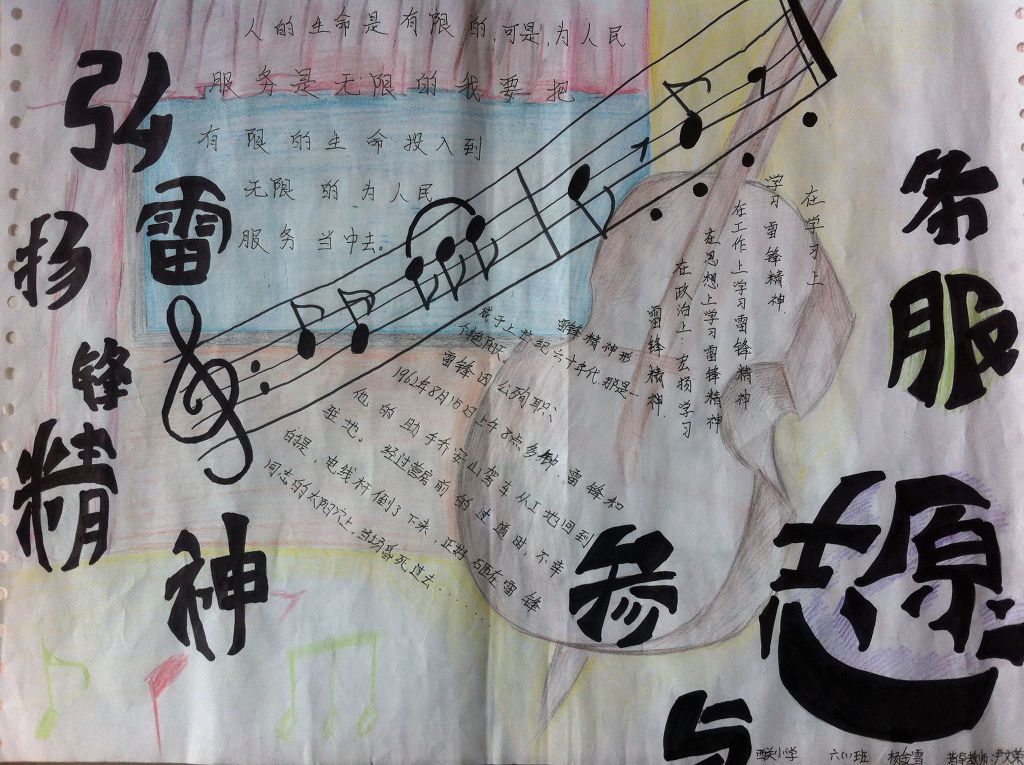 弘扬雷锋精神
参与志愿服务
人的生命是有限的,可是,为人民
服务是无限的我要把
有限的生命投入到
无限的为人民
服务当中去。
在学习上
学习雷锋精神.
在工作上学习雷锋精神
在思想上学习雷锋精神
在政治上.宏扬学习
雷锋精神.
雷锋精神形
成于上世纪六十年代,那是一
雷锋因公殉职、
1962年8月15日上午8点多钟,雷锋和
他的助手乔安山驾车从工地回到
驻地。经过营房前的过道时,不幸
的是,电线杆倒了下来,正好砸在雷锋
同志的太阳穴上,当场昏死过去......
西关小学 六(1)班 杨金雪 指导教师:尹文荣